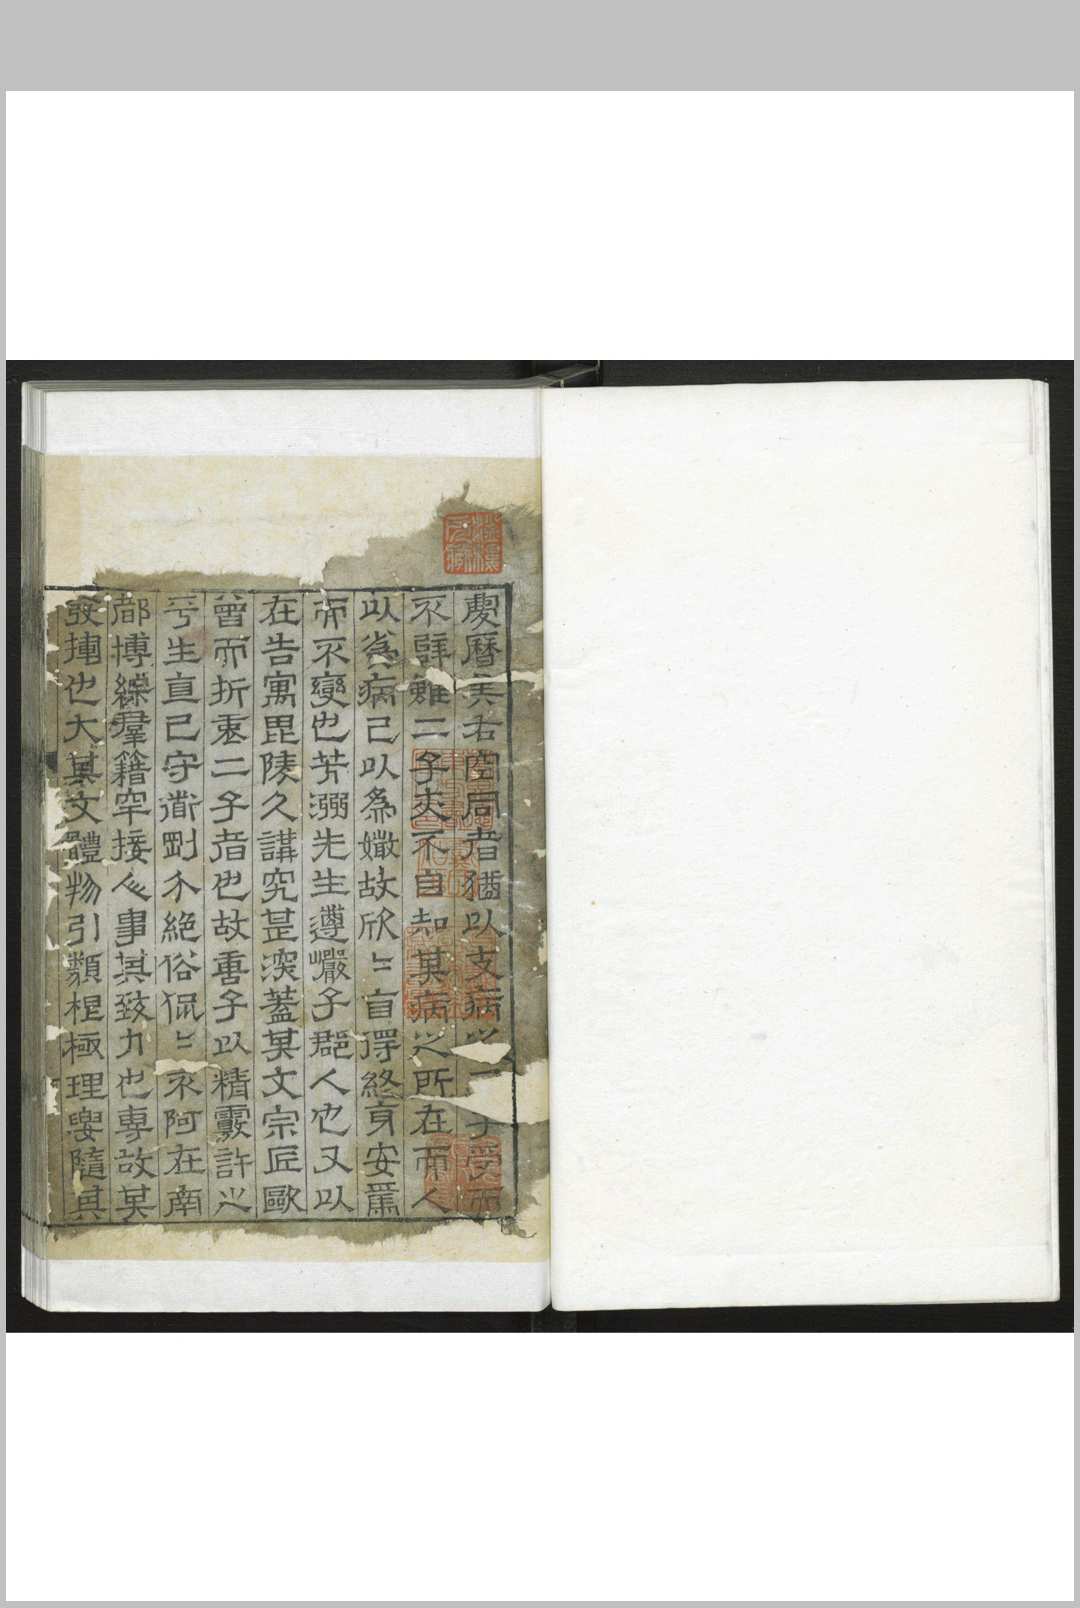 慶曆矣右空同者猶以支病之二子受而
不辭雖二子亦不自知其病之所在而人
以為病己以為媺故欣〻自得終身安焉
而不變也芳溺先生遵巖子郡人也又以
在告寓毘陵久講究甚深蓋其文宗匠歐
曾而折衷二子者也故吾子以精覈許之
平生直己守道剛不絕俗侃〻不阿在南
都博綜羣籍罕接人事其致力也專故其
發揮也大其文體物引類根極理要隨其